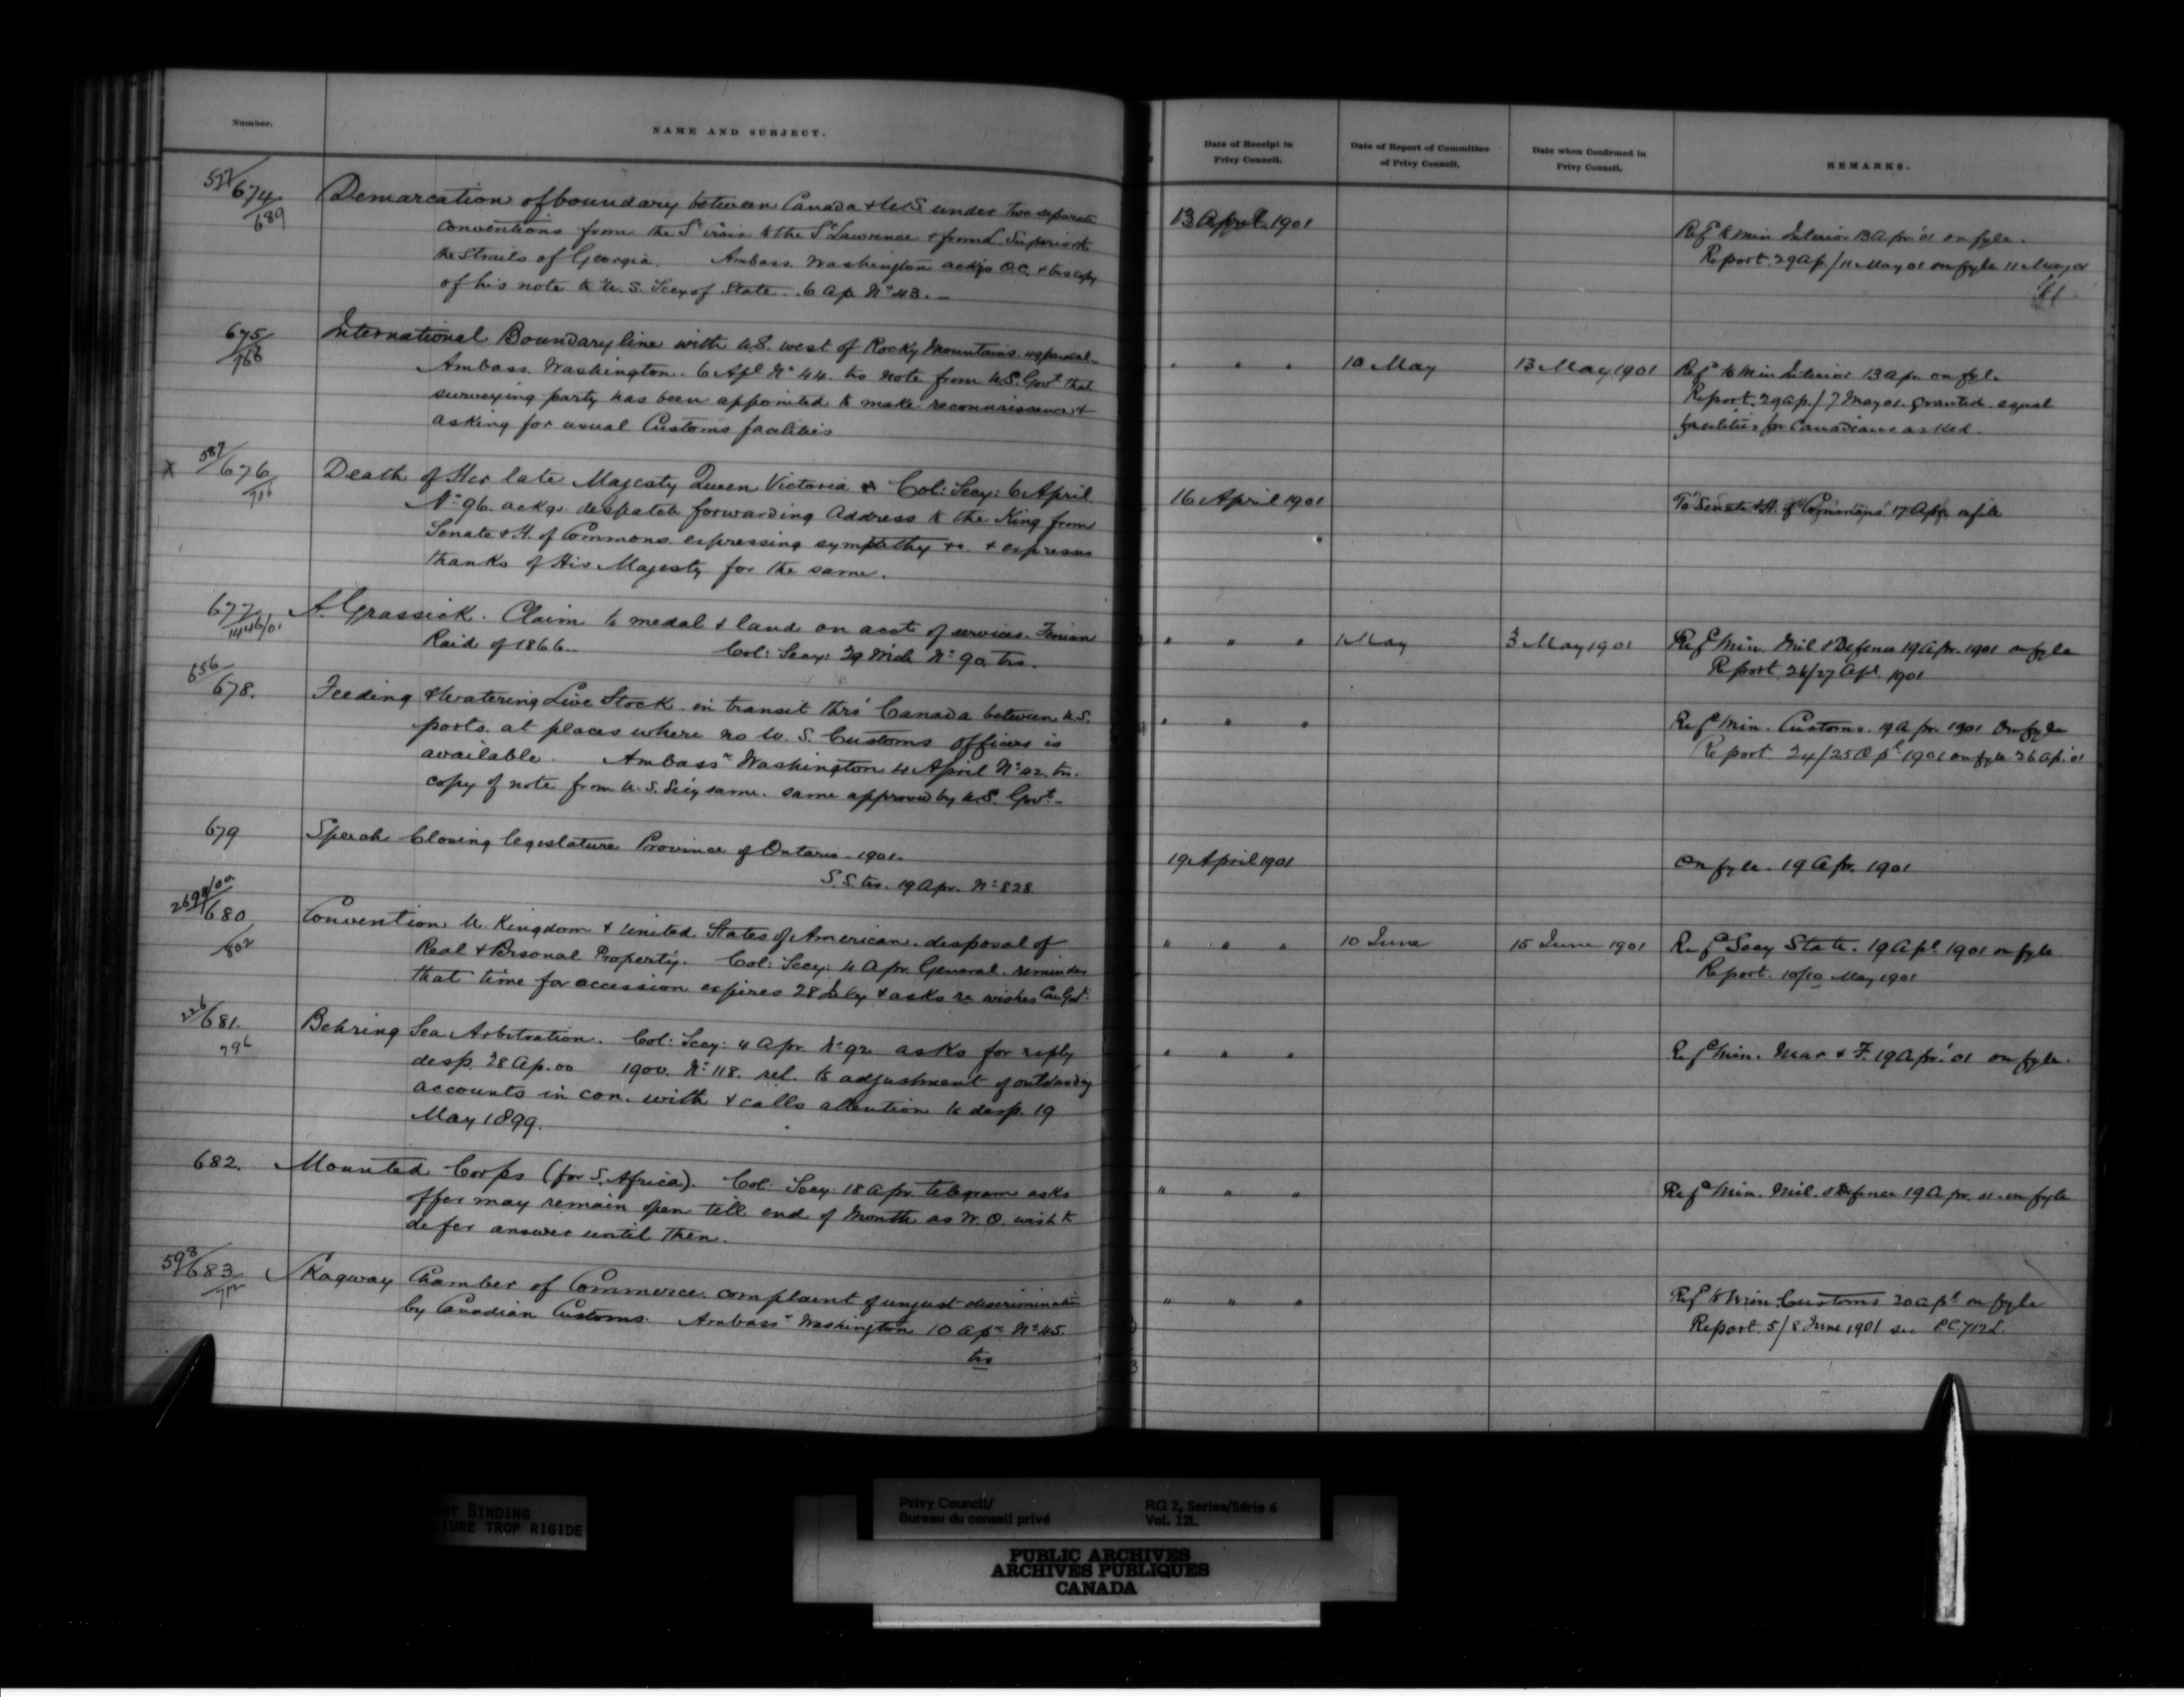 Number.
NAME AND SUBJECT.
Date of Receipt in
Privy Council.
Date of Report of Committee
of Privy Council.
Date when Confirmed in
Privy Council.
REMARKS.
674
689
Demarcation of boundary between Canada & U.S under two separate
conventions from the St Croix to the St Lawrence & from L. Superior to
the Straits of Georgia. Ambass. Washington ackgs O.C. & trs copy
of his note to U.S. Secy of State. 6 Ap. No 43.
13 April 1901
Refd to Min Interior 13 Apr. 01 on fyle.
Report. 29 Ap./11 May 01 on fyle 11 May 01
675
768
International Boundary line with U.S. west of Rocky Mountains
Ambass. Washington. 6 Apl No 44. trs note from U.S. Govt that
surveying party has been appointed to make reconnaissance &
asking for usual Customs facilities
" " "
10 May
13 May 1901
Refd to Min Interior 13 Apr on fyle
Report. 29 Ap./7 May 01. granted. equal
facilities for Canadians asked.
x
587/676
Death of Her late Majesty Queen Victoria Col: Secy: 6 April
No 96. ackgs despatch forwarding Address to the King from
Senate & H. of Commons. expressing sympathy &c. & expresses
thanks of His Majesty for the same.
16 April 1901
To Senate & H. of Commons 17 Apr. on file
677
1446/01
A. Grassick. Claim to medal & land on acct of services. Fenian
Raid of 1866. Col: Secy: 29 Mch No 90. trs.
" " "
1 May
3 May 1901
Refd Min. Mil & Defence 19 Apr. 1901 on fyle
Report 26/27 Apl 1901
656/678.
Feeding & Watering Live Stock. in transit thro' Canada between U.S.
ports. at places where no U.S. Customs officers is
available. Ambassr Washington 4 April No 42. trs.
copy of note from U.S. Secy same. same approved by U.S. Govt.
" " "
Refd Min. Customs. 19 Apr. 1901 On fyle
Report. 24/25 Apl 1901 on fyle 26 Ap. 01
679
Speech Closing legislature Province of Ontario. 1901.
S.S. trs. 19 Apr. No 828
19 April 1901
On fyle. 19 Apr. 1901
680
802
Convention U. Kingdom & United States of American. disposal of
Real & Personal Property. Col: Secy: 4 Apr. General. reminder
that time for accession expires 28 July & asks re wishes Can Govt.
" " "
10 June
15 June 1901
Refd Secy State. 19 Apl 1901 on fyle.
Report. 10/10 May 1901
226/681.
796
Behring Sea Arbitration. Col: Secy: 4 Apr. No 92 asks for reply
desp. 28 Ap. 00 1900. No 118. rel. to adjustment of outstanding
accounts in con. with & calls attention to desp. 19
May 1899.
" " "
Refd Min. Mar & F. 19 Apr. 01 on fyle.
682.
Mounted Corps (for S. Africa). Col: Secy: 18 Apr telegram asks
offer may remain open till end of Month as W.O. wish to
defer answer until then.
" " "
Refd Min. Mil. & Defence 19 Apr. 01. on fyle
598/683
712
Skagway Chamber of Commerce. complaint of unjust discrimination
by Canadian Customs. Ambassr Washington 10 Apr No 45.
trs
" " "
Refd to Min. Customs 20 Apl on fyle
Report. 5/8 June 1901 see P.C. 712 L.
NT BINDING
LIURE TROP RIGIDE
Privy Council/
Bureau du conseil privé
RG 2, Series/Série 6
Vol. 121
PUBLIC ARCHIVES
ARCHIVES PUBLIQUES
CANADA